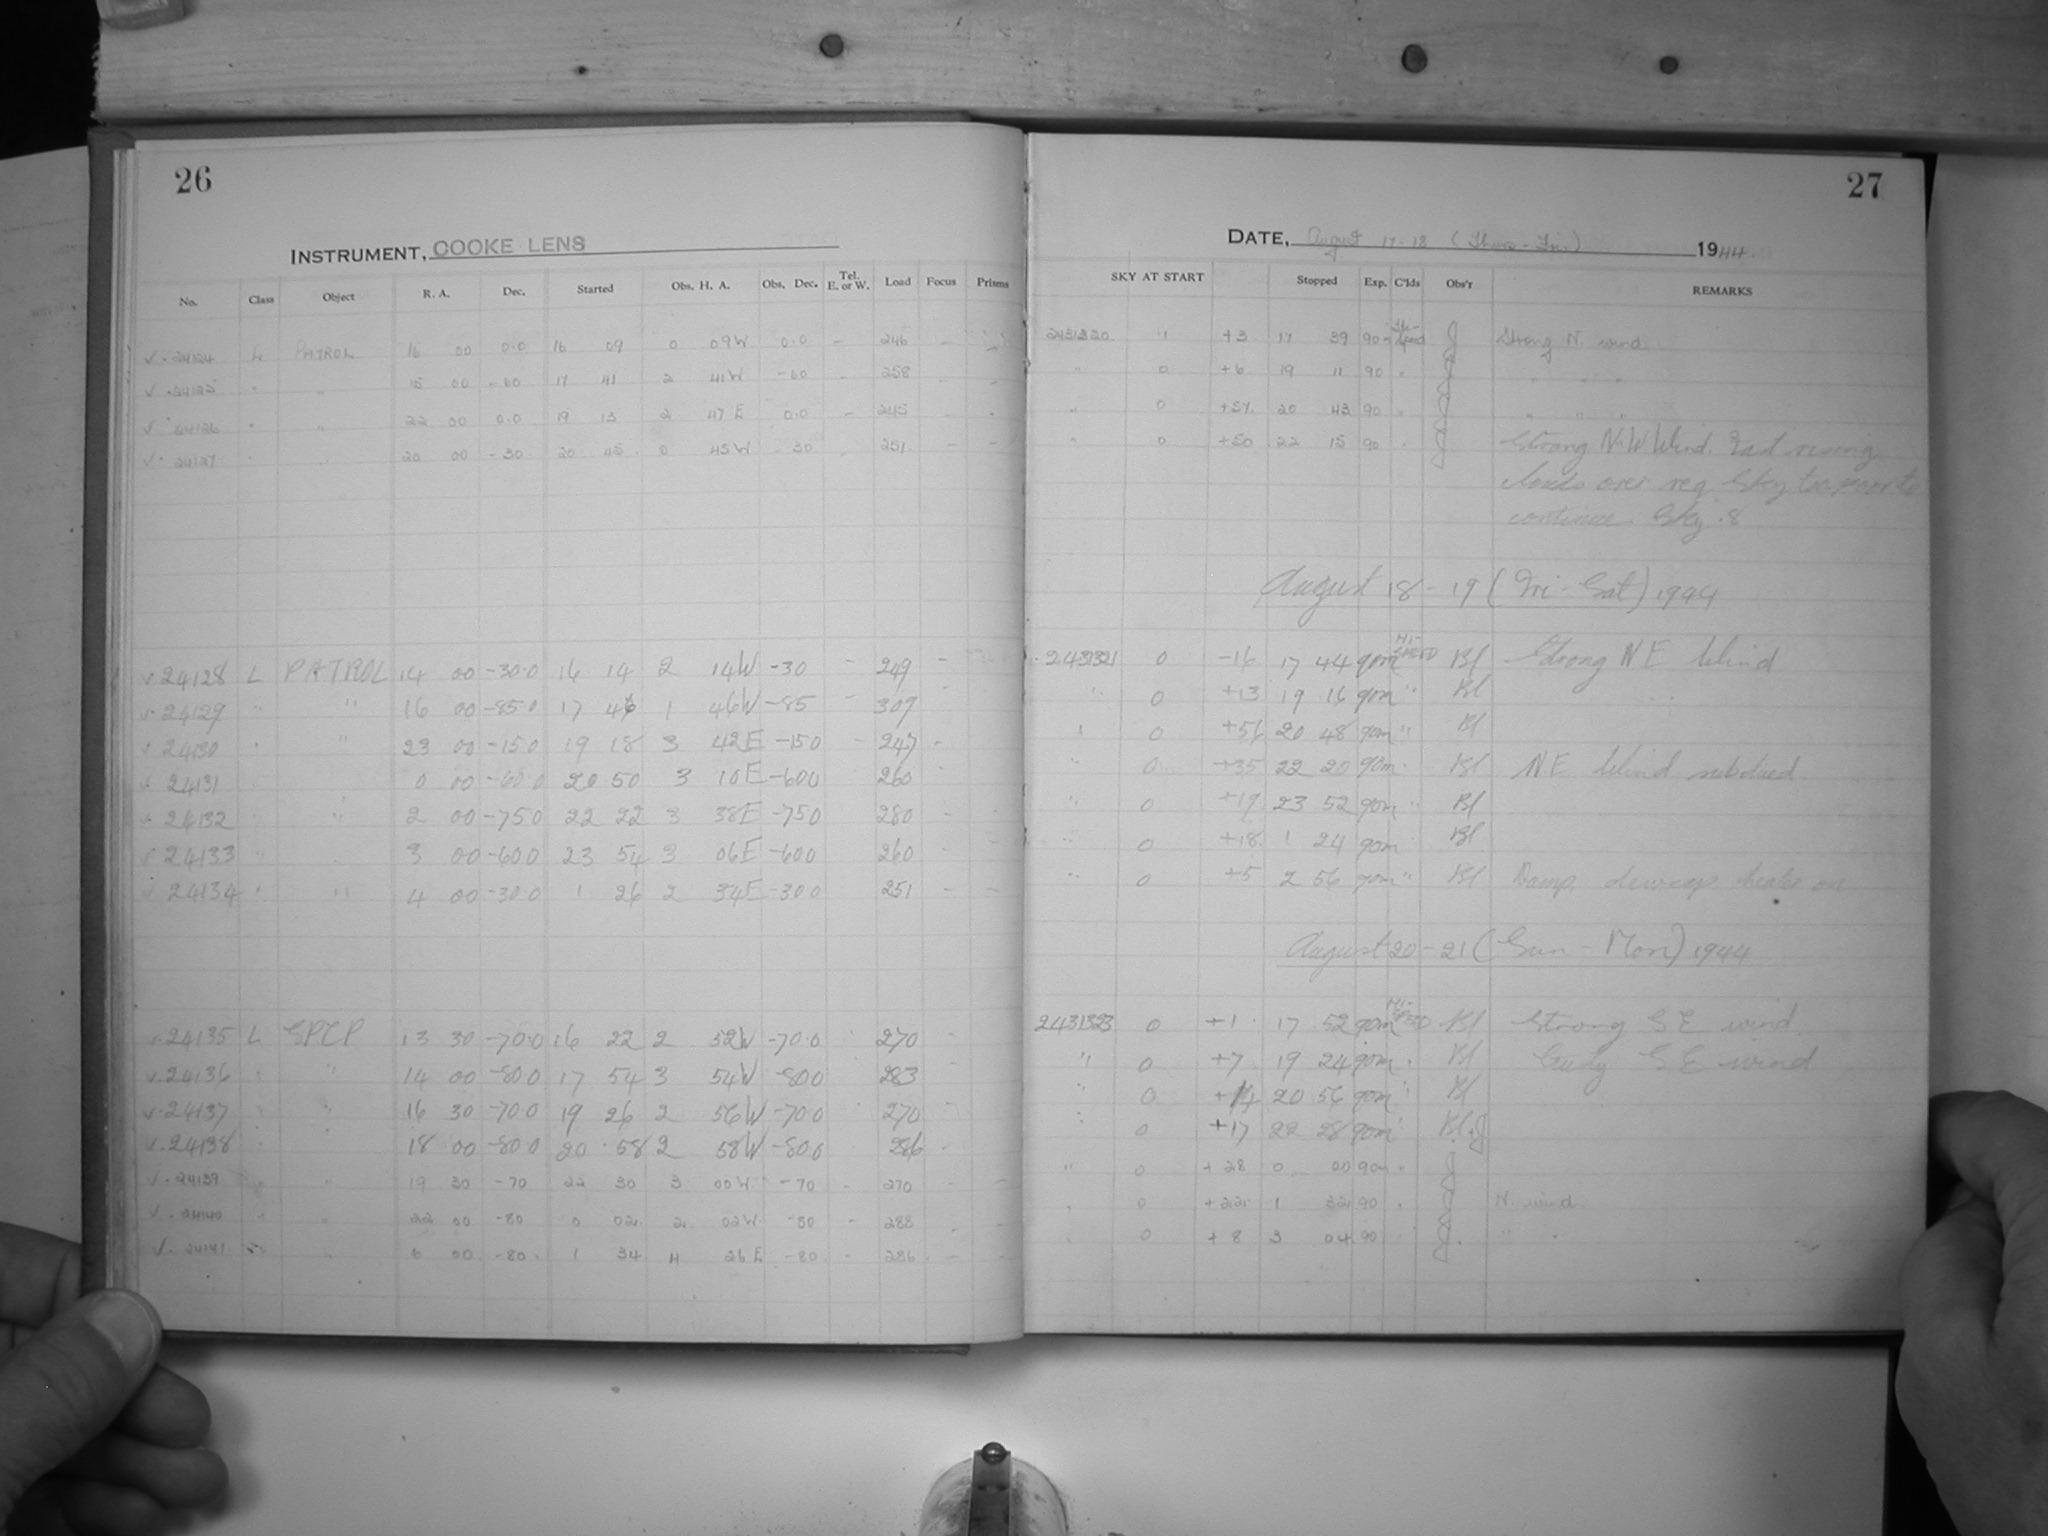 26
INSTRUMENT, COOKE LENS
No. Class Object R. A. Dec. Started Obs. H. A. Obs. Dec. Tel. E. or W. Load Focus Prisms
√ . 24124 L PATROL 16 00 0.0 16 09 0 09W 0.0 - 246 - -
√ . 24125 " " 15 00 -60 17 41 2 41W -60 - 258 - -
√ . 24126 " " 22 00 0.0 19 13 2 47 E 0.0 - 245 - -
√ . 24127 " " 20 00 -30 20 45 0 45W -30 - 251 - -
√ 24128 L PATROL 14 00 -30.0 16 14 2 14W -30 - 249 -
√ . 24129 " " 16 00 -85.0 17 46 1 46W -85 - 309 -
√ 24130 " " 23 00 -15.0 19 18 3 42E -150 - 247 -
√ 24131 0 00 -60.0 20 50 3 10E -600 260 -
√ 24132 " " 2 00 -750 22 22 3 38E -750 280 -
√ 24133 " " 3 00 -600 23 54 3 06E -600 260 -
√ 24134 " " 4 00 -300 1 26 2 34E -300 251 - -
√ 24135 L SPCP 13 30 -70.0 16 22 2 52W -70.0 270 -
√ . 24136 " " 14 00 -800 17 54 3 54W -800 283 -
√ . 24137 " " 16 30 -700 19 26 2 56W -700 270 -
√ . 24138 " " 18 00 -800 20 58 2 58W -800 286 -
√ . 24139 " " 19 30 -70 22 30 3 00W -70 - 270 - -
√ . 24140 " " 22 00 -80 0 02 2 02W -80 - 288 - -
√ . 24141 " " 6 00 -80 1 34 4 26 E -80 - 286 - -
27
DATE, August 17-18 (Thurs - Fri) 1944.
SKY AT START Stopped Exp. C'lds Obs'r REMARKS
2431320 1 +3 17 39 90m Hi-Speed J Strong N. wind
" 0 +6 19 11 90 " " " "
" 0 20 43 90 " " " "
" 0 +50 22 15 90 " Strong N.W Wind. rising
clouds over reg. Sky too poor to
continue. Sky .8
August 18 - 19 (Fri - Sat) 1944
2431321 0 -16 17 44 90m HI-SPEED Bl Strong N E Wind
" 0 +13 19 16 90m " Bl
" 0 +56 20 48 90m " Bl
" 0 +35 22 20 90m " Bl N.E Wind subdued
" 0 +19 23 52 90m " Bl
" 0 +18 1 24 90m " Bl
" 0 +5 2 56 90m " Bl Damp, dewcap heater on
August 20 - 21 (Sun - Mon) 1944
2431323 0 +1 17 52 90m HI-SPEED Bl Strong S E wind
" 0 +7 19 24 90m " Bl Gusty S E wind
" 0 +14 20 56 90m " Bl
" 0 +17 22 28 90m " Bl.J
" 0 +28 0 00 90m " J
" 0 +22 1 32 90 " N. wind.
" 0 +8 3 04 90 " " "